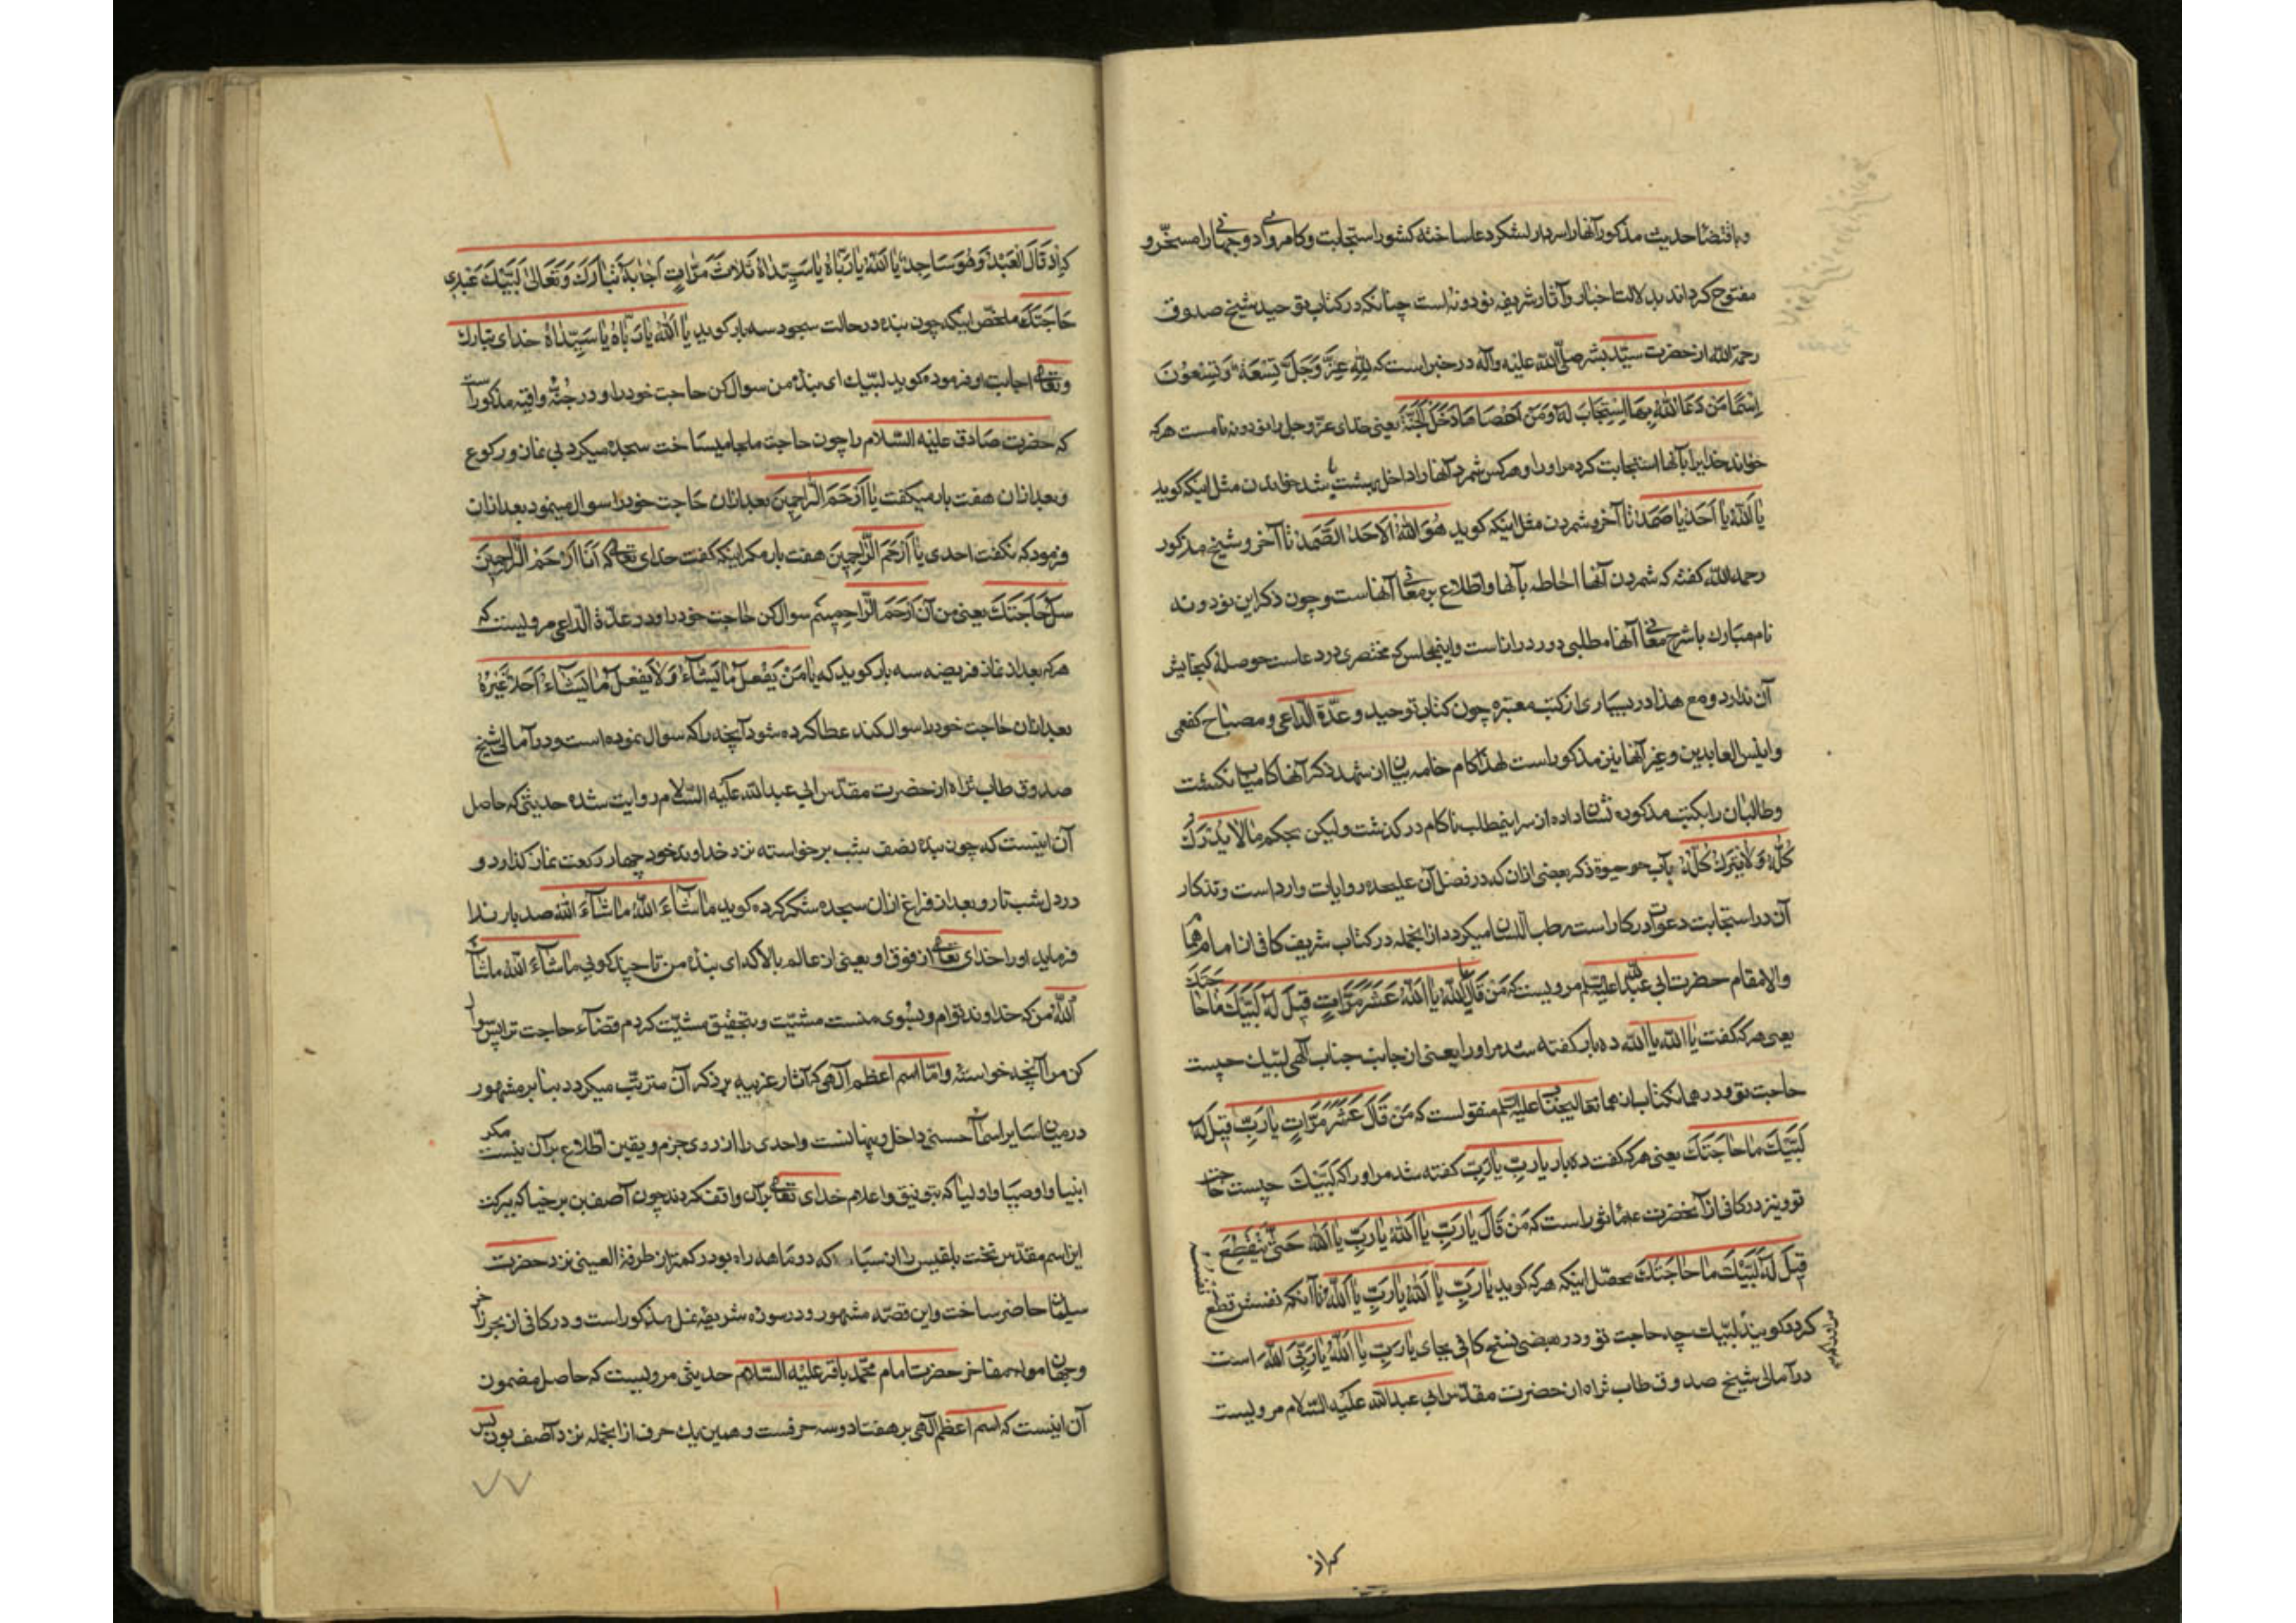 و باقتضا حدیث مذکور آنها را سردار لشکر دعا ساخته کشور استجابت و کامروائی دوجهانی را مسخّر و
مفتوح کرداند بدلالت اخبار و آثار شریفه نود و نه است چنانکه در کتاب توحید شیخ صدوق
رحمة الله از حضرت سیّد بشر صلّی الله علیه وآله در خبر است که لِلّٰهِ عَزَّ وَجَلَّ تِسْعَةٌ وَتِسْعُونَ
اِسْمًا مَنْ دَعَا اللّٰهَ بِهَا اسْتَجَابَ لَهُ وَمَنْ اَحْصَاهَا دَخَلَ الْجَنَّةَ یعنی خدای عزّ وجل را نود و نه نامست هر که
خواند خدایرا بآنها استجابت کرد مر او را و هر کس شمرد آنها را داخل بهشت شد خواندن مثل اینکه کوید
یَا اَللّٰهُ یَا اَحَدُ یَا صَمَدُ تا آخر و شمردن مثل اینکه کوید هُوَ اللّٰهُ الْاَحَدُ الصَّمَدُ تا آخر و شیخ مذکور
رحمه الله کفته که شمردن آنها احاطه بآنها و اطّلاع بر معانی آنهاست و چون ذکر این نود و نه
نام مبارک با شرح معانی آنها مطلبی دور و دراز است و اینمجلس که مختصری در دعاست حوصلهٔ کنجایش
آن ندارد و مع هذا در بسیاری از کتب معتبره چون کتاب توحید و عدّة الدّاعی و مصباح کفعمی
و انیس العابدین و غیر آنها نیز مذکور است لهذا کام خامه بیان از شهد ذکر آنها کامیاب نکشت
و طالبان را بکتب مذکوره نشان داده از سر اینمطلب ناکام در کذشت ولیکن بحکم مَالَا یُدْرَكُ
کُلُّهُ لَا یُتْرَكُ کُلُّهُ بآب حیوة ذکر بعضی از آن که در فضل آن علیحده روایات وارد است و تذکار
آن در استجابت دعوات در کار است رطب اللّسان میکردد از انجمله در کتاب شریف کافی از امام همام
والامقام حضرت ابی عبدالله علیه السلم مرویست که مَنْ قَالَ یَا اَللّٰهُ یَا اَللّٰهُ عَشَرَ مَرَّاتٍ قِیلَ لَهُ لَبَّیْكَ مَا حَاجَتُكَ
یعنی هر که کفت یا الله یا الله ده بار کفته شد مر او را یعنی از جانب جناب الهی لبّیك چیست
حاجت تو و در همانکتاب از همانعالیجناب علیه السلم منقولست که مَنْ قَالَ عَشَرَ مَرَّاتٍ یَا رَبِّ قِیلَ لَهُ
لَبَّیْكَ مَا حَاجَتُكَ یعنی هر که کفت ده بار یا ربِّ یا رَبِّ کفته شد مر او را که لَبَّیْكَ چیست حاجت
تو و نیز در کافی از آنحضرت ع ماثور است که مَنْ قَالَ یَا رَبِّ یَا اَللّٰهُ یَا رَبِّ یَا اَللّٰهُ حَتّٰی یَنْقَطِعَ نفسه
قِیلَ لَهُ لَبَّیْكَ مَا حَاجَتُكَ محصّل اینکه هر که کوید یَا رَبِّ یَا اَللّٰهُ یَا رَبِّ یَا اَللّٰهُ تا آنکه نفسش قطع
کردد کویند لبّیك چه حاجت تو و در بعضی نسخ کافی بجای یَا رَبِّ یَا اَللّٰهُ یَا رَبِّیَ اللّٰهُ است
در آمالی شیخ صدوق طاب ثراه از حضرت مقدّس ابی عبدالله علیه السّلام مرویست
که اذ
که اِذَا قَالَ الْعَبْدُ وَهُوَ سَاجِدٌ یَا اَللّٰهُ یَا رَبَّاهُ یَا سَیِّدَاهُ ثَلَاثَ مَرَّاتٍ اَجَابَهُ تَبَارَكَ وَتَعَالٰی لَبَّیْكَ عَبْدِی
حَاجَتَكَ ملخّص اینکه چون بنده در حالت سجود سه بار کوید یَا اَللّٰهُ یَا رَبَّاهُ یَا سَیِّدَاهُ خدای تبارك
و تعالی اجابت او فرموده کوید لبّیك ای بندهٔ من سوال کن حاجت خود را و در جُنّهٔ واقیه مذکور است
که حضرت صادق علیه السّلام را چون حاجت ملجا میساخت سجده میکرد بی نماز و رکوع
و بعد از آن هفت بار میکفت یَا اَرْحَمَ الرَّاحِمِینَ بعد از آن حاجت خود را سوال مینمود بعد از آن
فرمود که نکفت احدی یَا اَرْحَمَ الرَّاحِمِینَ هفت بار مکر اینکه کفت خدای تعالی که اَنَا اَرْحَمُ الرَّاحِمِینَ
سَلْ حَاجَتَكَ یعنی من آن اَرْحَمَ الرَّاحِمینم سوال کن حاجت خود را و در عدّة الدّاعی مرویست که
هر که بعد از نماز فریضه سه بار کوید که یَا مَنْ یَفْعَلُ مَا یَشَاءُ وَلَا یَفْعَلُ مَا یَشَاءُ اَحَدٌ غَیْرُهُ
بعد از آن حاجت خود را سوال کند عطا کرده شود آنچه را که سوال نموده است و در آمالی شیخ
صدوق طاب ثراه از حضرت مقدّس ابی عبدالله علیه السّلام روایت شده حدیثی که حاصل
آن اینست که چون بنده نصف شب برخواسته نزد خداوند خود چهار رکعت نماز کذارد و
در دل شب تار و بعد از فراغ از آن سجده شکر کرده کوید مَا شَاءَ اللّٰهُ مَا شَاءَ اللّٰهُ صد بار ندا
فرماید او را خدای تعالی از فوق او یعنی از عالم بالا که ای بندهٔ من تا چند کوئی مَا شَاءَ اللّٰهُ ماشاء
اللّٰهُ من که خداوند توام و بسوی منست مشیّت و بتحقیق مشیّت کردم قضآء حاجت ترا پس سوال
کن مرا آنچه خواسته و امّا اسم اعظم الهی که آثار غریبه بر ذکر آن مترتّب میکردد بنا بر مشهور
در میان سایر اسمآء حسنی داخل و پنهانست و احدی را از روی جزم و یقین اطّلاع بر آن نیست مکر
انبیا و اوصیا و اولیا که بتوفیق و اعلام خدای تعالی بر آن واقف کردند چون آصف بن برخیا که ببرکت
این اسم مقدّس تخت بلقیس را از سبا که دو ماهه راه بود در کمتر از طرفة العینی نزد حضرت
سلیمان حاضر ساخت و این قصّه مشهور و در سوره شریفه نمل مذکور است و در کافی از بحر زاخر
و جهان مواهب مفاخر حضرت امام محمّد باقر علیه السّلام حدیثی مرویست که حاصل مضمون
آن اینست که اسم اعظم الهی بر هفتاد و سه حرفست و همین یك حرف از انجمله نزد آصف بود پس
٧٧